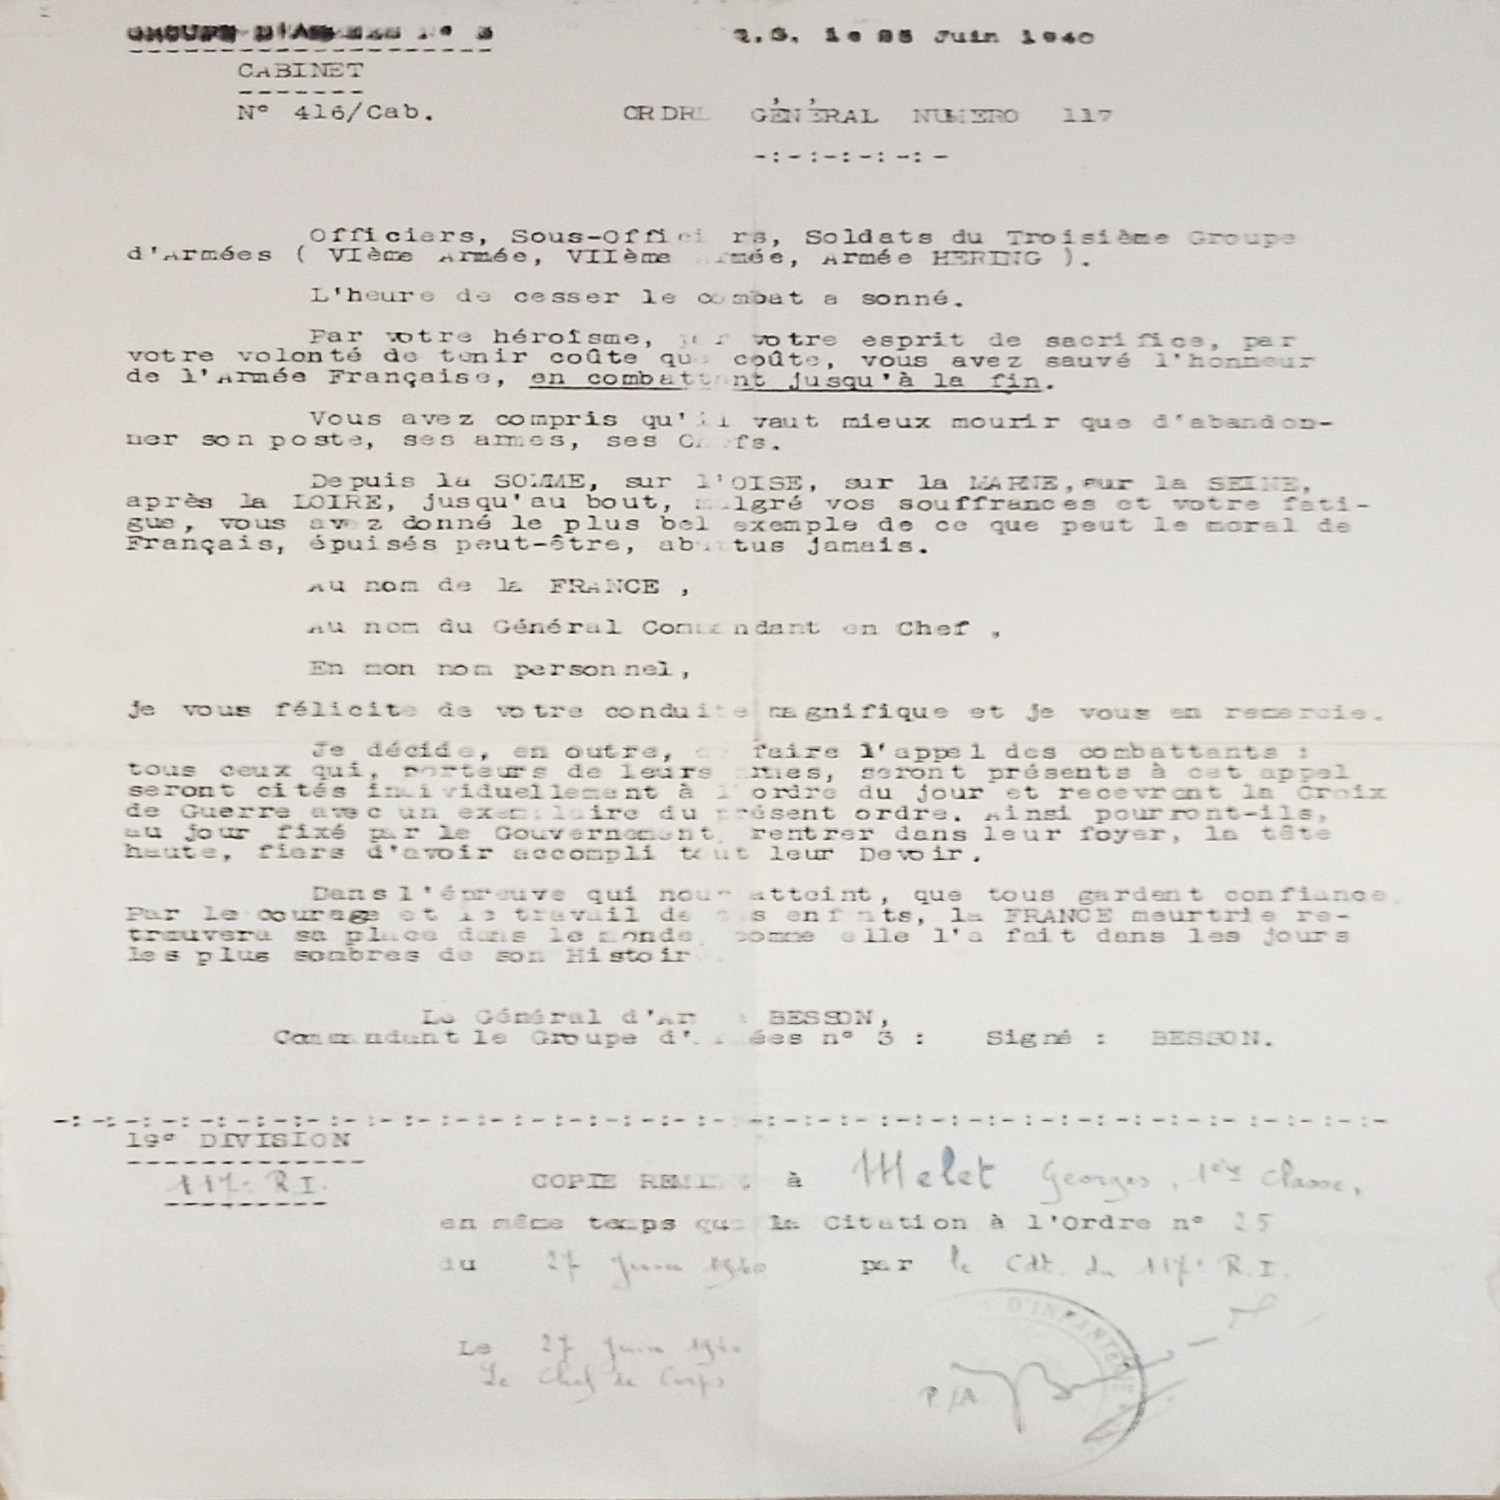 GROUPE D'ARMEES N° 3
Q.G. le 25 Juin 1940
CABINET
N° 416/Cab.
ORDRE GÉNÉRAL NUMERO 117
-:-:-:-:-:-
Officiers, Sous-Officiers, Soldats du Troisième Groupe
d'Armées ( VIème Armée, VIIème Armée, Armée HERING ).
L'heure de cesser le combat a sonné.
Par votre héroïsme, par votre esprit de sacrifice, par
votre volonté de tenir coûte que coûte, vous avez sauvé l'honneur
de l'Armée Française, en combattant jusqu'à la fin.
Vous avez compris qu'il vaut mieux mourir que d'abandon-
ner son poste, ses armes, ses Chefs.
Depuis la SOMME, sur l'OISE, sur la MARNE, sur la SEINE,
après la LOIRE, jusqu'au bout, malgré vos souffrances et votre fati-
gue, vous avez donné le plus bel exemple de ce que peut le moral de
Français, épuisés peut-être, abattus jamais.
Au nom de la FRANCE ,
Au nom du Général Commandant en Chef ,
En mon nom personnel,
je vous félicite de votre conduite magnifique et je vous en remercie.
Je décide, en outre, de faire l'appel des combattants :
tous ceux qui, porteurs de leurs armes, seront présents à cet appel
seront cités individuellement à l'ordre du jour et recevront la Croix
de Guerre avec un exemplaire du présent ordre. Ainsi pourront-ils,
au jour fixé par le Gouvernement, rentrer dans leur foyer, la tête
haute, fiers d'avoir accompli tout leur Devoir.
Dans l'épreuve qui nous atteint, que tous gardent confiance.
Par le courage et le travail de ses enfants, la FRANCE meurtrie re-
trouvera sa place dans le monde, comme elle l'a fait dans les jours
les plus sombres de son Histoire.
Le Général d'Armée BESSON,
Commandant le Groupe d'Armées n° 3 : Signé : BESSON.
-:-:-:-:-:-:-:-:-:-:-:-:-:-:-:-:-:-:-:-:-:-:-:-:-:-:-:-:-:-:-:-:-:-:-:-:-
19e DIVISION
117e R.I.
COPIE REMISE à Melet Georges, 1ère Classe,
en même temps que la Citation à l'Ordre n° 25
du 27 Juin 1940 par le Cdt. du 117e R.I.
Le 27 Juin 1940
Le Chef de Corps
P/A
D'INFANTERIE